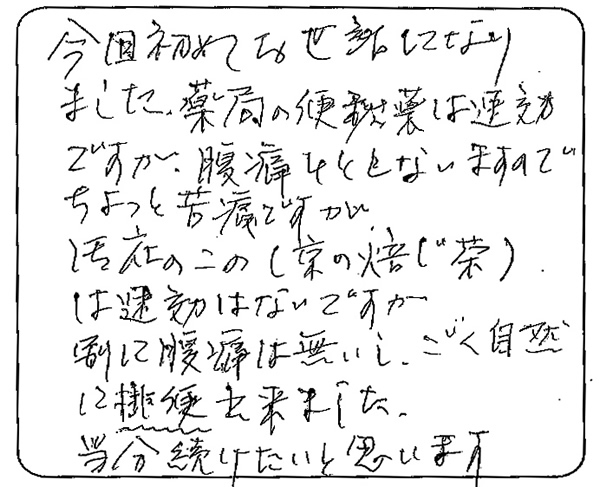 今回初めてお世話になり
ました。薬局の便秘薬は速効
ですが、腹痛をともないますので
ちょっと苦痛ですが、
のこの(京の焙じ茶)
は速効はないですが
割に腹痛は無いし、ごく自然
に排便出来ました。
当分続けたいと思います